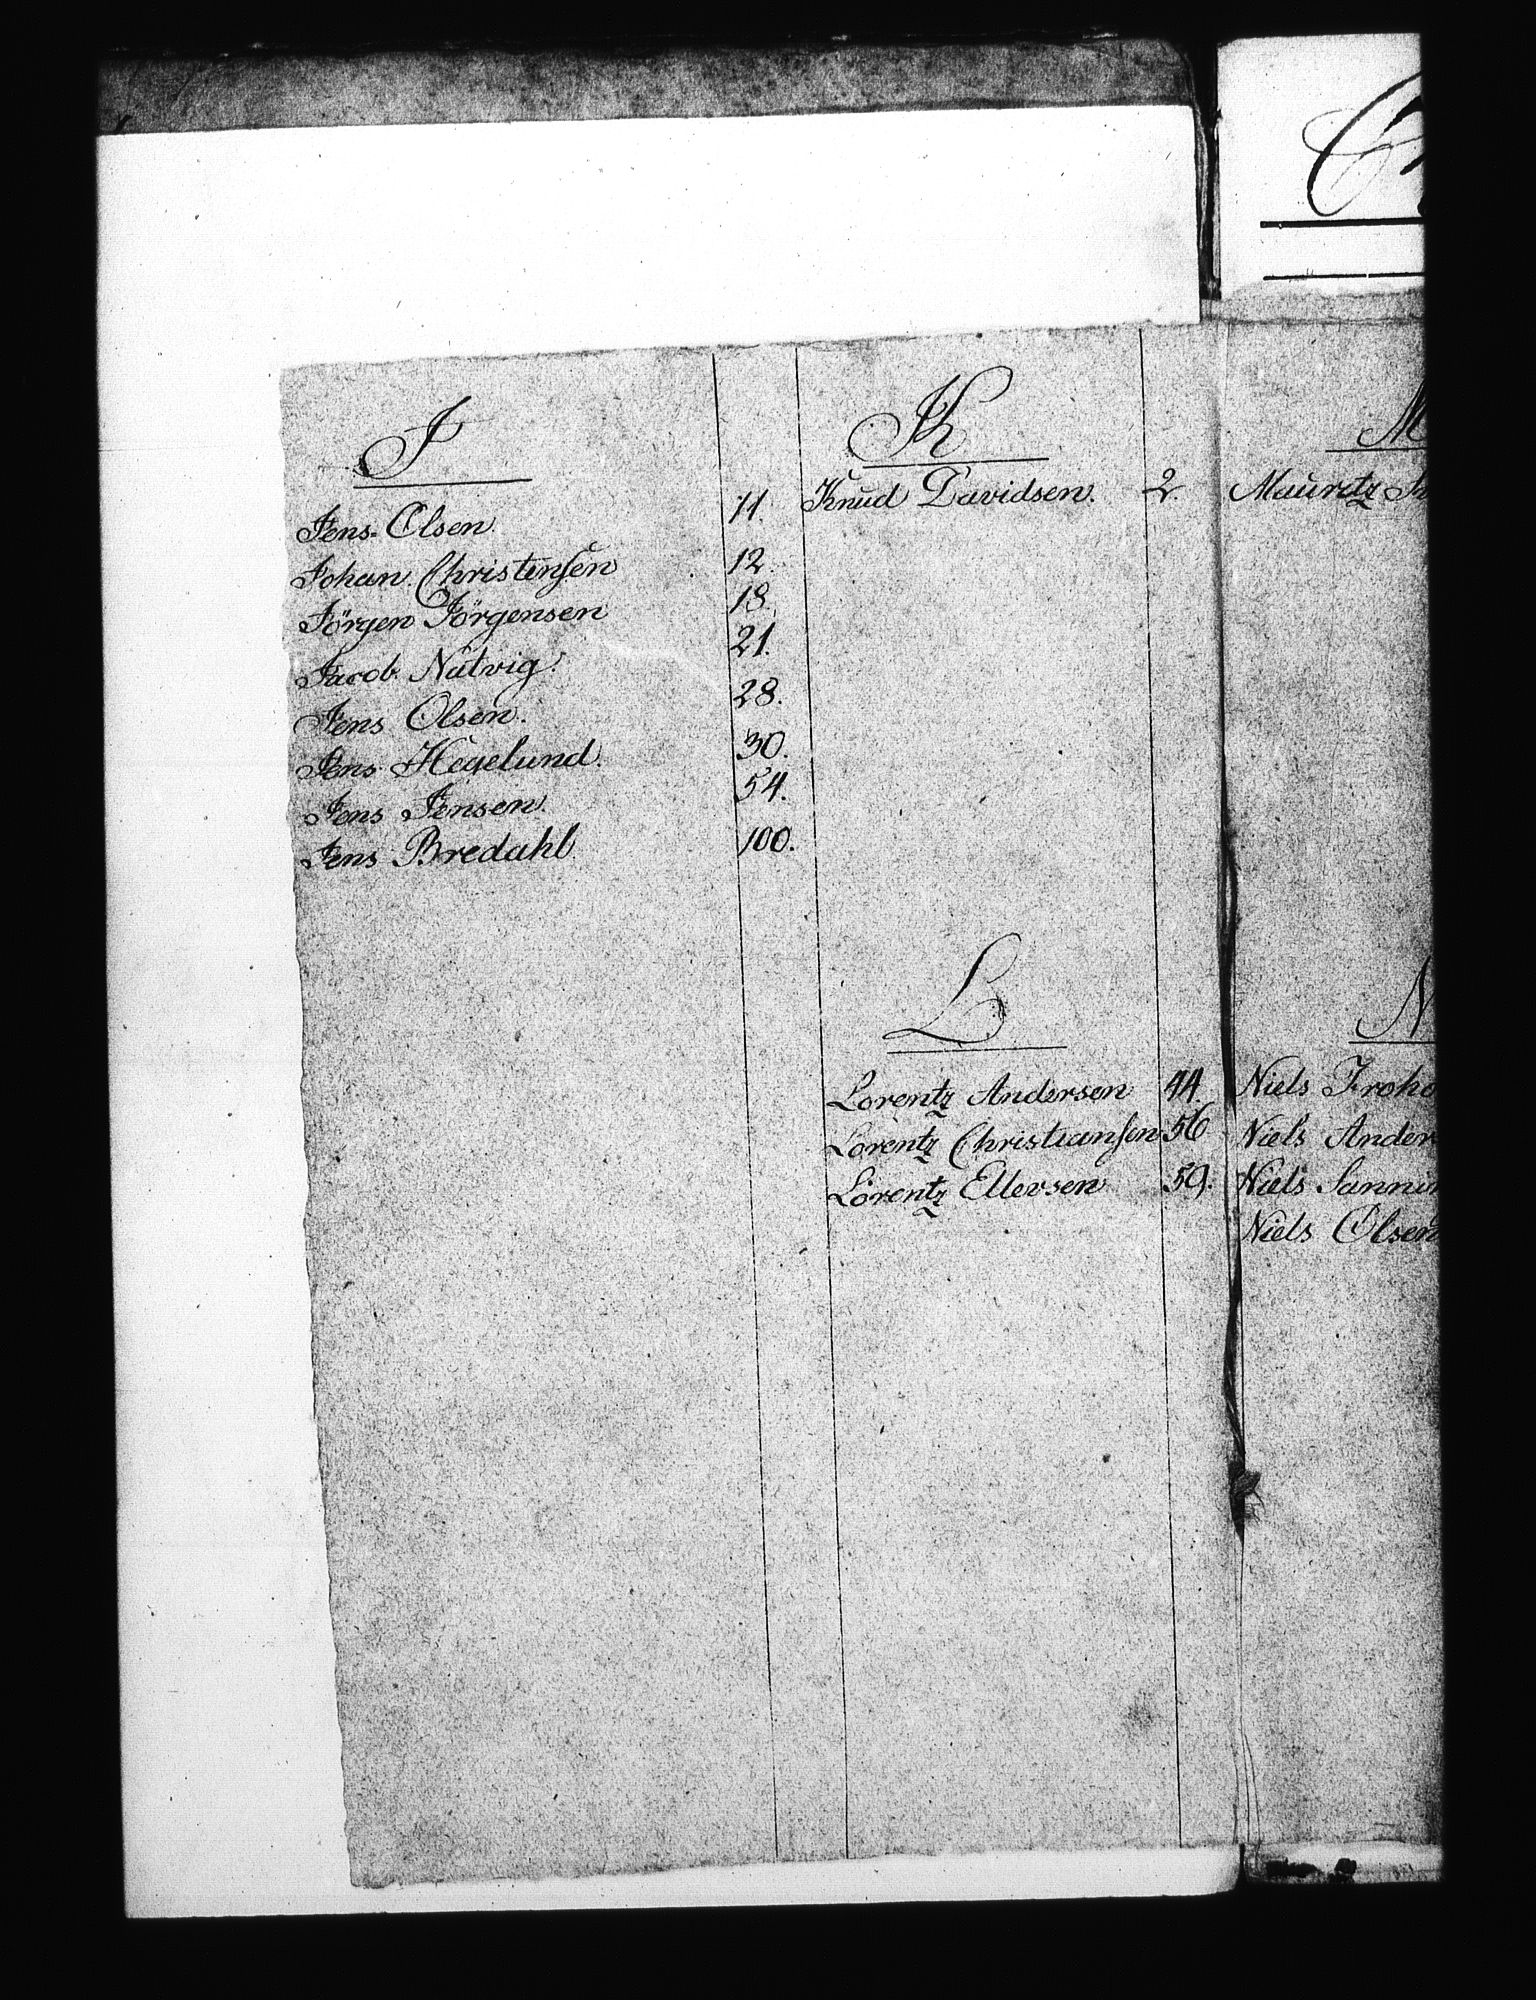 J
Jens Olsen. 11.
Johan Christensen 12.
Jörgen Jörgensen 18.
Jacob Natvig. 21.
Jens Olsen. 28.
Jens Hegelund. 30.
Jens Jensen. 54.
Jens Bredahl 100.
K
Knud Davidsen. 2.
L
Lorentz Andersen 44.
Lorentz Christiansen 56
Lorentz Ellevsen 59.
M
Mauritz
N
Niels
Niels Ander
Niels
Niels Olsen